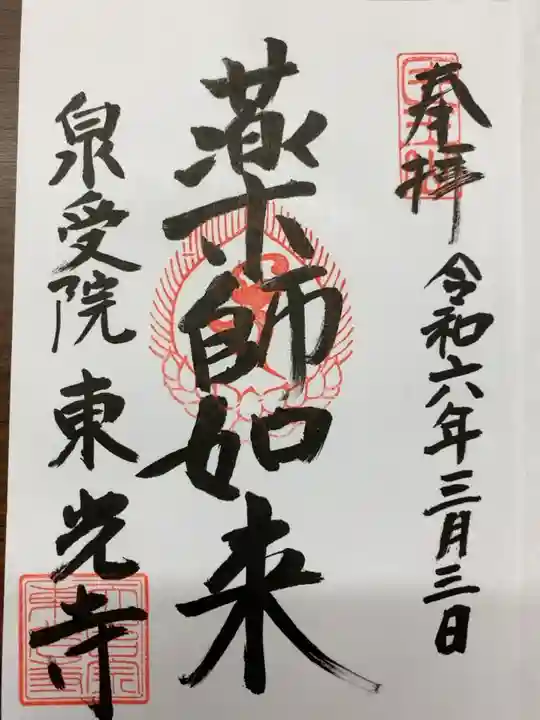 奉拝
令和六年三月三日
薬師如来
泉受院 東光寺